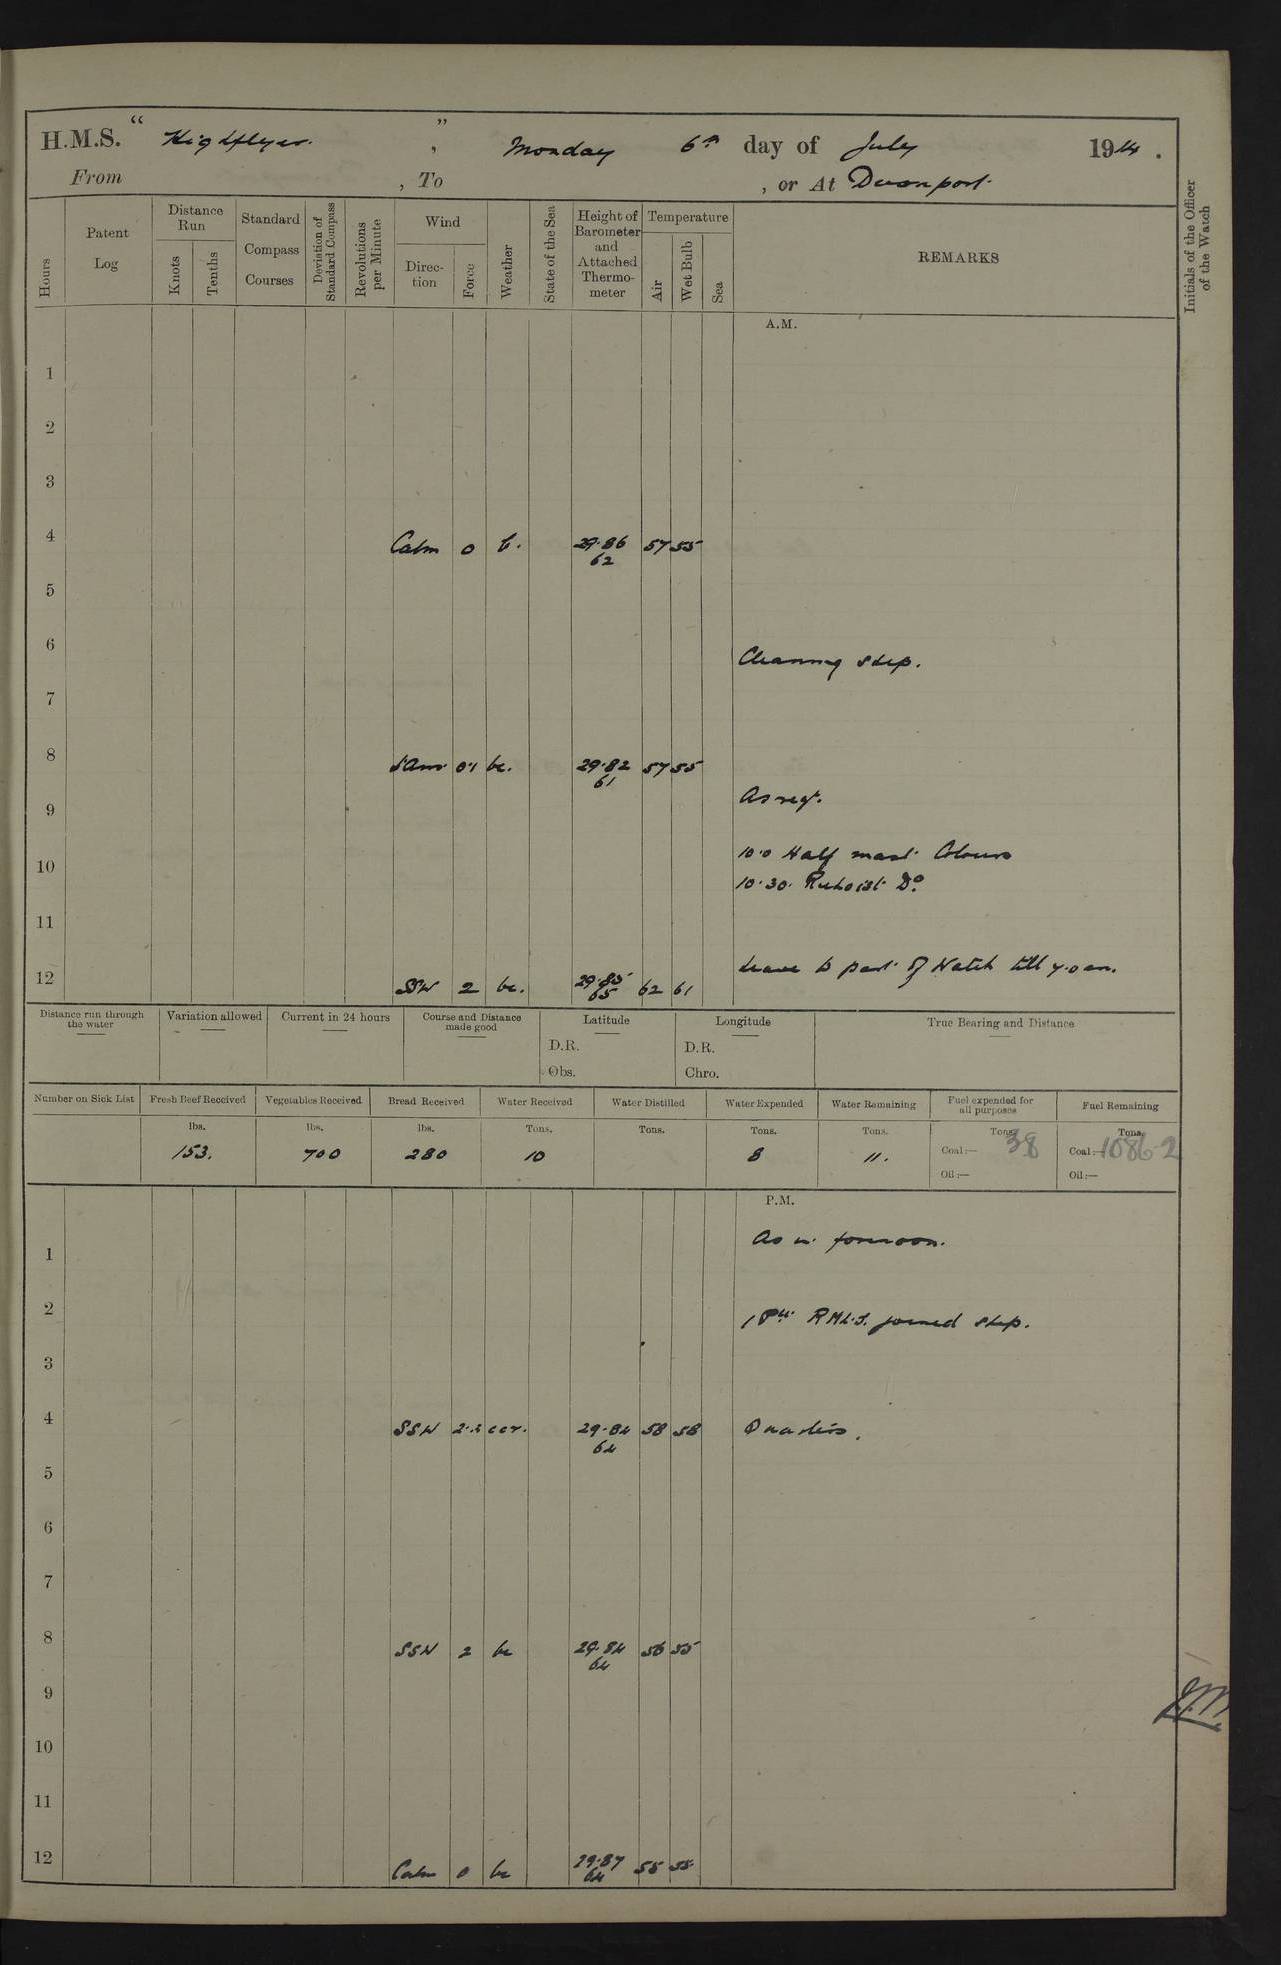 H.M.S. "Highflyer.", Monday 6th day of July 1914.
From , To , or At Devonport.
Hours
Patent Log
Distance Run
Knots
Tenths
Standard Compass Courses
Deviation of Standard Compass
Revolutions per Minute
Wind
Direction
Force
Weather
State of the Sea
Height of Barometer and Attached Thermometer
Temperature
Air
Wet Bulb
Sea
REMARKS
Initials of the Officer of the Watch
A.M.
1
2
3
4 Calm 0 b. 29.86 62 57 55
5
6
Cleaning ship.
7
8 0.1 bc. 29.82 61 57 55
As reqt.
9
10.0 Half mast Colours
10
10.30. Rehoist Do.
11
Leave to part of Watch till 7.0 am.
12 SSW 2 bc. 29.85 65 62 61
Distance run through the water
Variation allowed
Current in 24 hours
Course and Distance made good
Latitude
D.R.
Obs.
Longitude
D.R.
Chro.
True Bearing and Distance
Number on Sick List
Fresh Beef Received
Vegetables Received
Bread Received
Water Received
Water Distilled
Water Expended
Water Remaining
Fuel expended for all purposes
Fuel Remaining
lbs. lbs. lbs. Tons. Tons. Tons. Tons. Tons. Tons.
153. 700 280 10 8 11. Coal:— 38 Coal:— 1086.2
Oil:— Oil:—
P.M.
As in forenoon.
1
2
R.M.L.I. joined ship.
3
4 SSW 29.84 64 58 58 Quarters.
5
6
7
8 SSW 2 bc 29.84 64 56 55
9
10
11
12 Calm 0 bc 29.87 64 55 55